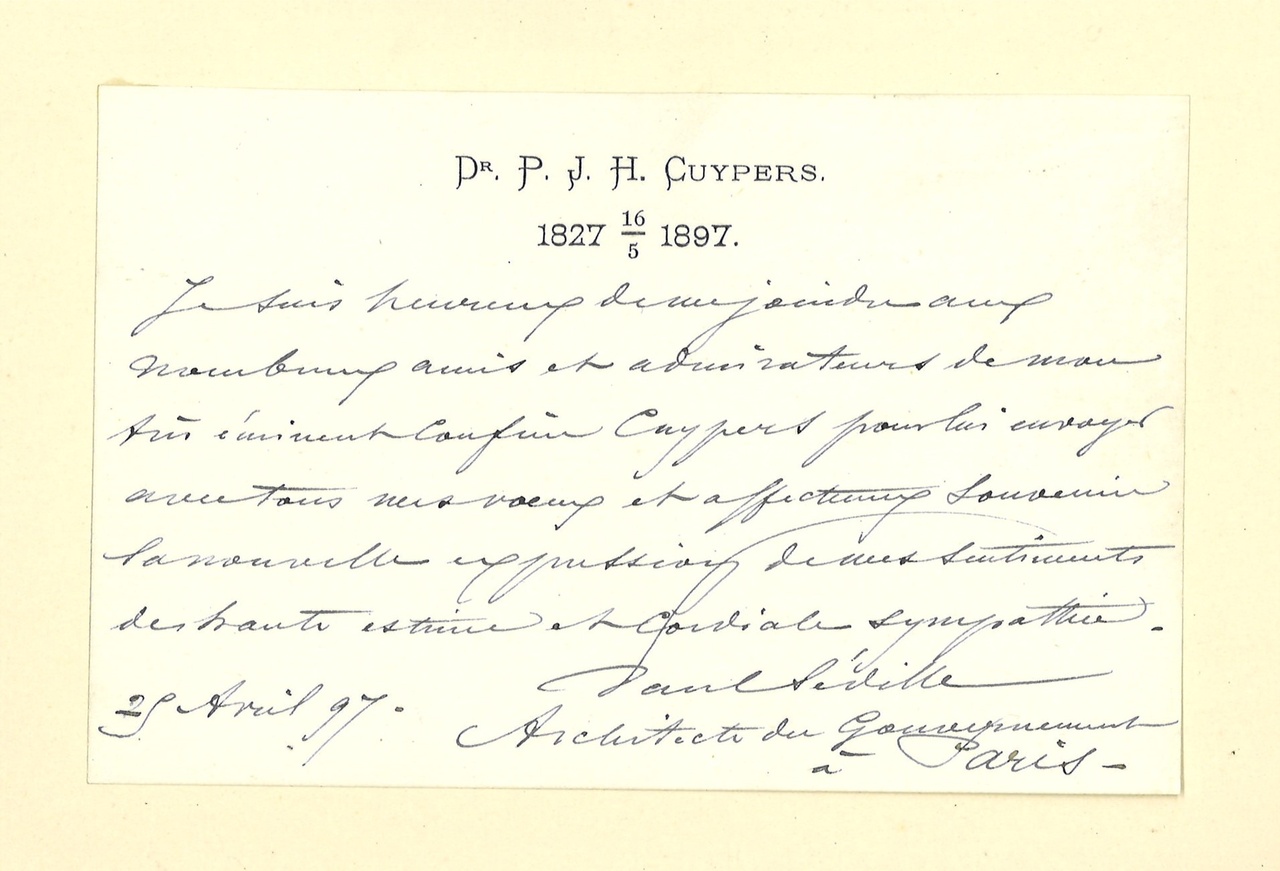 Dr. P. J. H. CUYPERS.
1827 16/5 1897.
Je suis heureux de me joindre aux
nombreux amis et admirateurs de mon
très éminent Confrère Cuypers pour lui envoyer
avec tous mes vœux et affectueux souvenir
la nouvelle expression de mes sentiments
de haute estime et Cordiale sympathie.
Paul Sédille
25 Avril 97.
Architecte du Gouvernement
à Paris